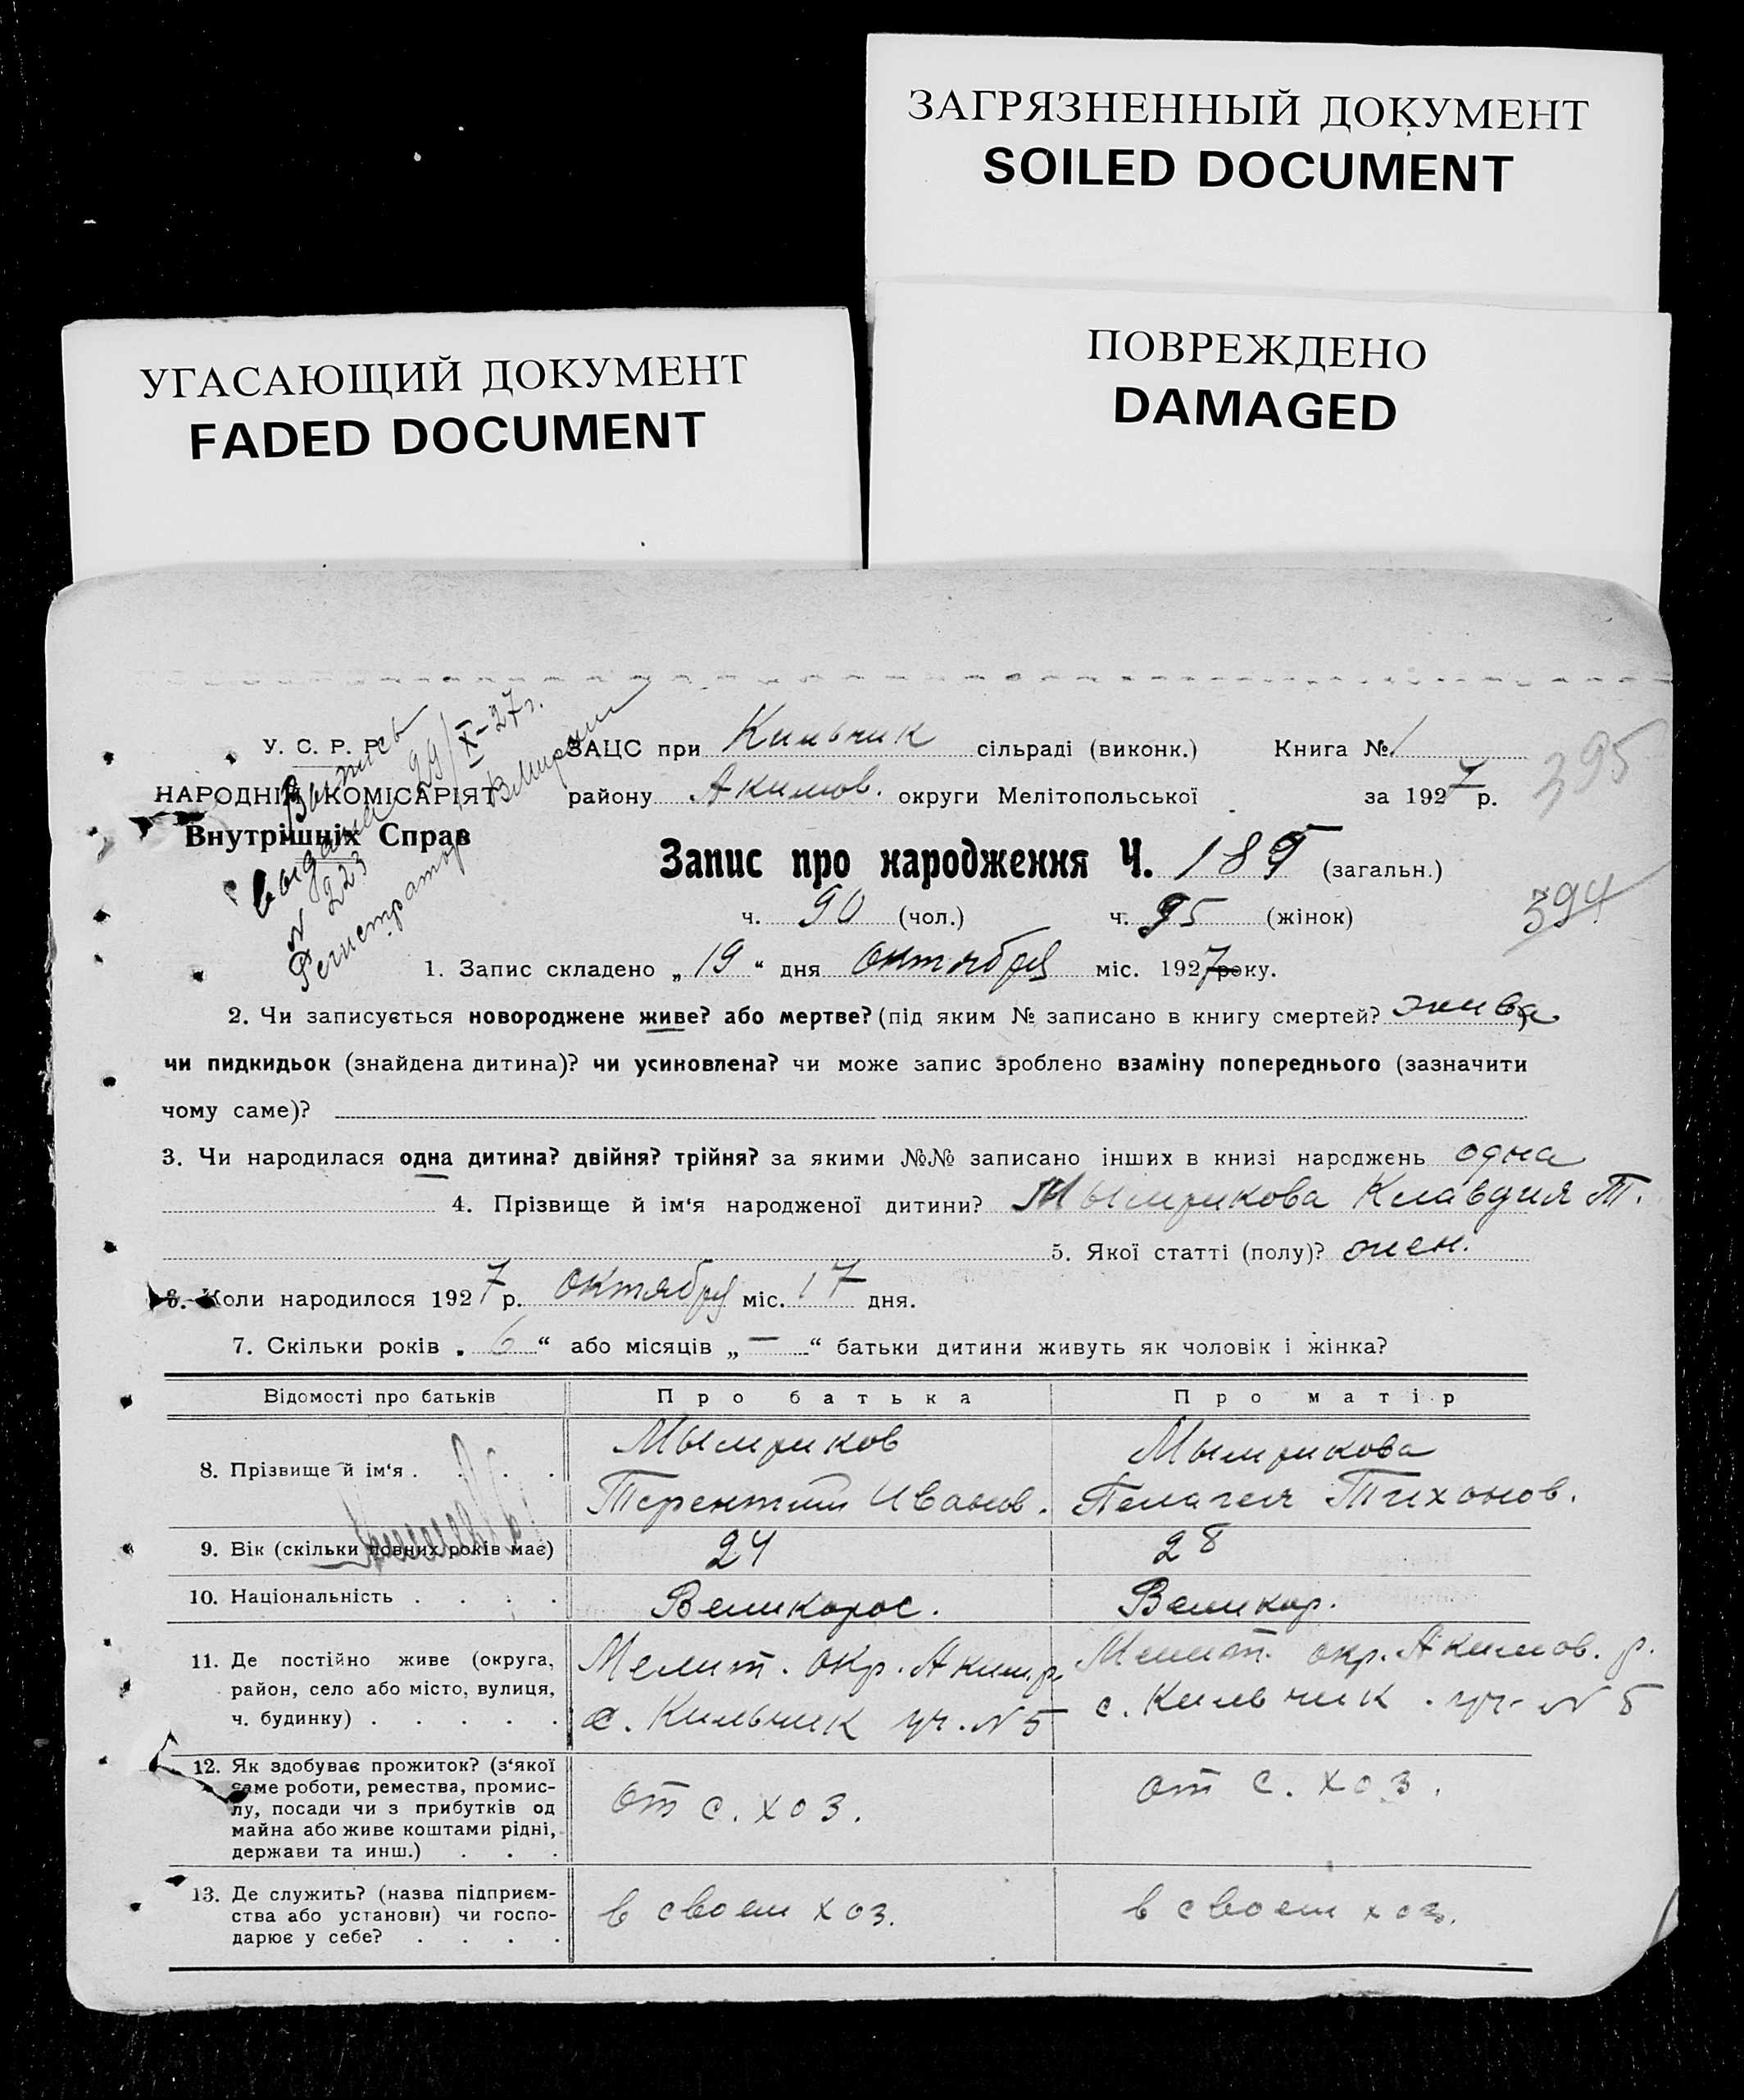 ЗАГРЯЗНЕННЫЙ ДОКУМЕНТ
SOILED DOCUMENT
УГАСАЮЩИЙ ДОКУМЕНТ
FADED DOCUMENT
ПОВРЕЖДЕНО
DAMAGED
У. С. Р. Р.
НАРОДНІЙ КОМІСАРІЯТ
Внутрішніх Справ
Выпись
выдана 29/X-27г.
N 223
Регистратор
ЗАЦС при Кильчик сільраді (виконк.) Книга № 1
району Акимов. округи Мелітопольської за 1927 р.
395
Запис про народження Ч. 185 (загальн.)
ч. 90 (чол.) ч. 95 (жінок)
394
1. Запис складено „19“ дня октября міс. 1927 року.
2. Чи записується новороджене живе? або мертве? (під яким № записано в книгу смертей? жива
чи пидкидьок (знайдена дитина)? чи усиновлена? чи може запис зроблено взаміну попереднього (зазначити
чому саме)?
3. Чи народилася одна дитина? двійня? трійня? за якими №№ записано інших в книзі народжень одна
4. Прізвище й ім‘я народженої дитини? Мымрикова Клавдия Т.
5. Якої статті (полу)? жен.
6. Коли народилося 1927 р. октября міс. 17 дня.
7. Скільки років „6“ або місяців „—“ батьки дитини живуть як чоловік і жінка?
Відомості про батьків Про батька Про матір
8. Прізвище й ім‘я . . . .
Мымриков
Терентий Иванов.
Мымрикова
Пелагея Тихонов.
9. Вік (скільки повних років має) 24 28
10. Національність . . . . Великорос. Великор.
11. Де постійно живе (округа,
район, село або місто, вулиця,
ч. будинку) . . . . .
Мелит. окр. Аким.р.
с. Кильчик уч. N 5
Мелит. окр. Акимов. р.
с. Кильчик. уч. N 5
12. Як здобуває прожиток? (з‘якої
саме роботи, ремества, промис-
лу, посади чи з прибутків од
майна або живе коштами рідні,
держави та инш.) . . .
от с. хоз.
от с. хоз.
13. Де служить? (назва підприєм-
ства або установи) чи госпо-
дарює у себе? . . . .
в своем хоз.
в своем хоз.